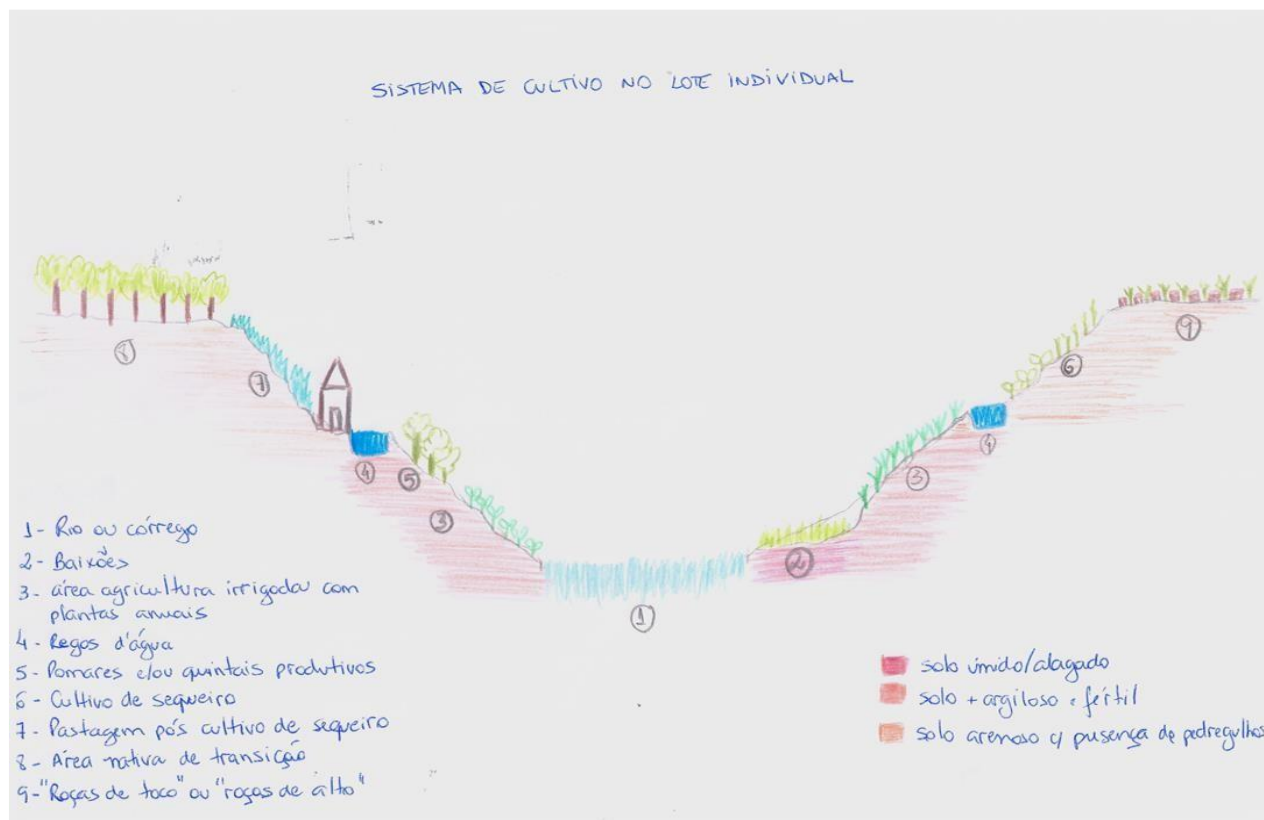 SISTEMA DE CULTIVO NO LOTE INDIVIDUAL
8
7
4
5
3
1
2
3
4
6
9
1- Rio ou córrego
2- Baixões
3- área agricultura irrigada com
plantas anuais
4- Regos d'água
5- Pomares e/ou quintais produtivos
6- Cultivo de sequeiro
7- Pastagem pós cultivo de sequeiro
8- Área nativa de transição
9- "Roças de toco" ou "roças de alto"
solo úmido/alagado
solo + argiloso e fértil
solo arenoso c/ presença de pedregulhos